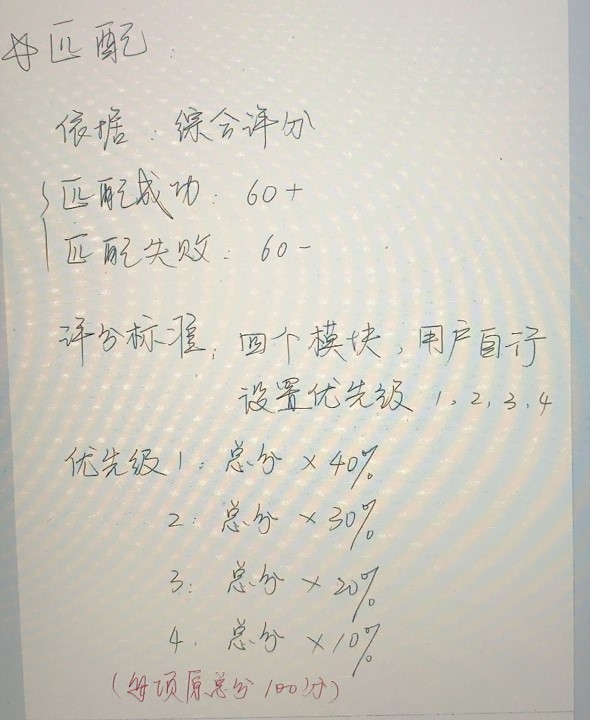 ☆匹配:
依据:综合评分
匹配成功:60+
匹配失败:60-
评分标准:四个模块,用户自行
设置优先级 1、2、3、4
优先级1:总分×40%
2:总分×30%
3:总分×20%
4.总分×10%
(每项原总分100分)